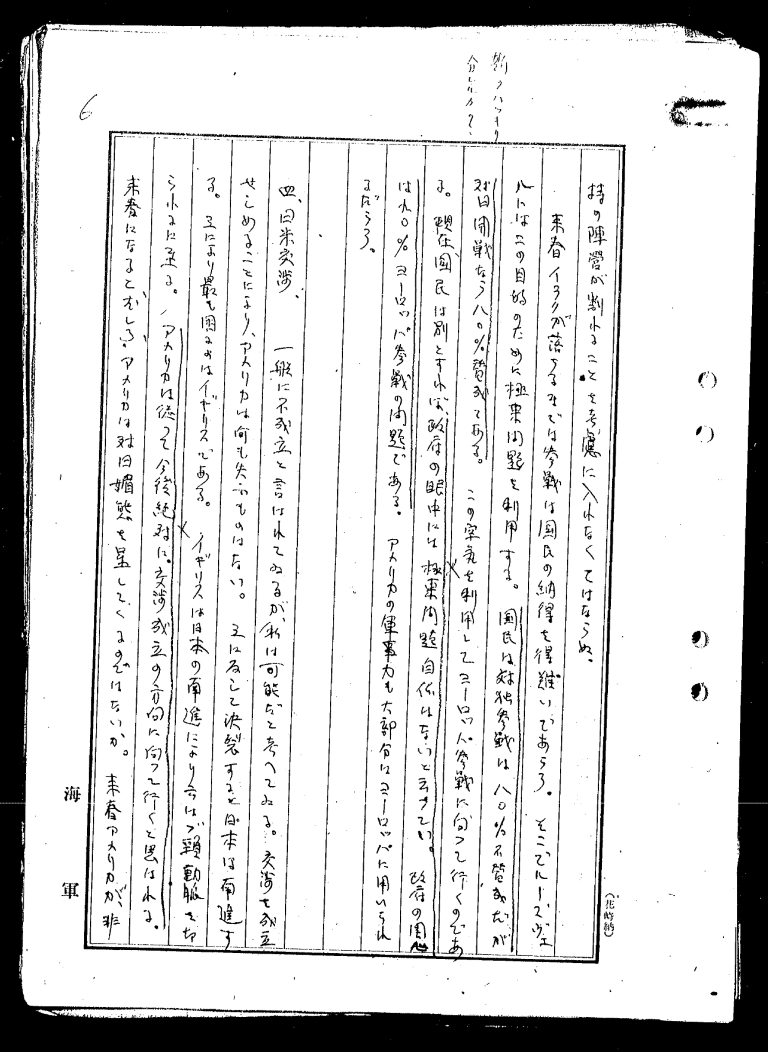 6
持の陣営が割れることを考慮に入れなくてはならぬ。
来春イラクが落ちるまでは参戦は国民の納得を得難いであらう。そこでルーズヴェ
ルトはこの目的のために極東問題を利用する。国民は対独参戦は八〇%不賛成だが
対日開戦なら八〇%賛成である。この空気を利用してヨーロッパ参戦に向って行くのであ
る。現在、国民は別とすれば、政府の眼中には極東問題自体はないと云ってよい。政府の関心
は九〇%ヨーロッパ参戦の問題である。アメリカの軍事力も大部分はヨーロッパに用いられ
るだらう。
四、日米交渉、一般に不成立と言はれてゐるが、私は可能だと考へてゐる。交渉を成立
せしめることにより、アメリカは何も失ふものはない。之に反して決裂すると日本は南進す
る。之により最も困るのはイギリスである。イギリスは日本の南進により云はゞ頸動脈を切
られるに至る。アメリカは従って今後絶対に交渉成立の方向に向って行くと思はれる。
来春になるとむしろアメリカは対日媚態を呈してくるのではないか。来春アメリカが、非
海軍